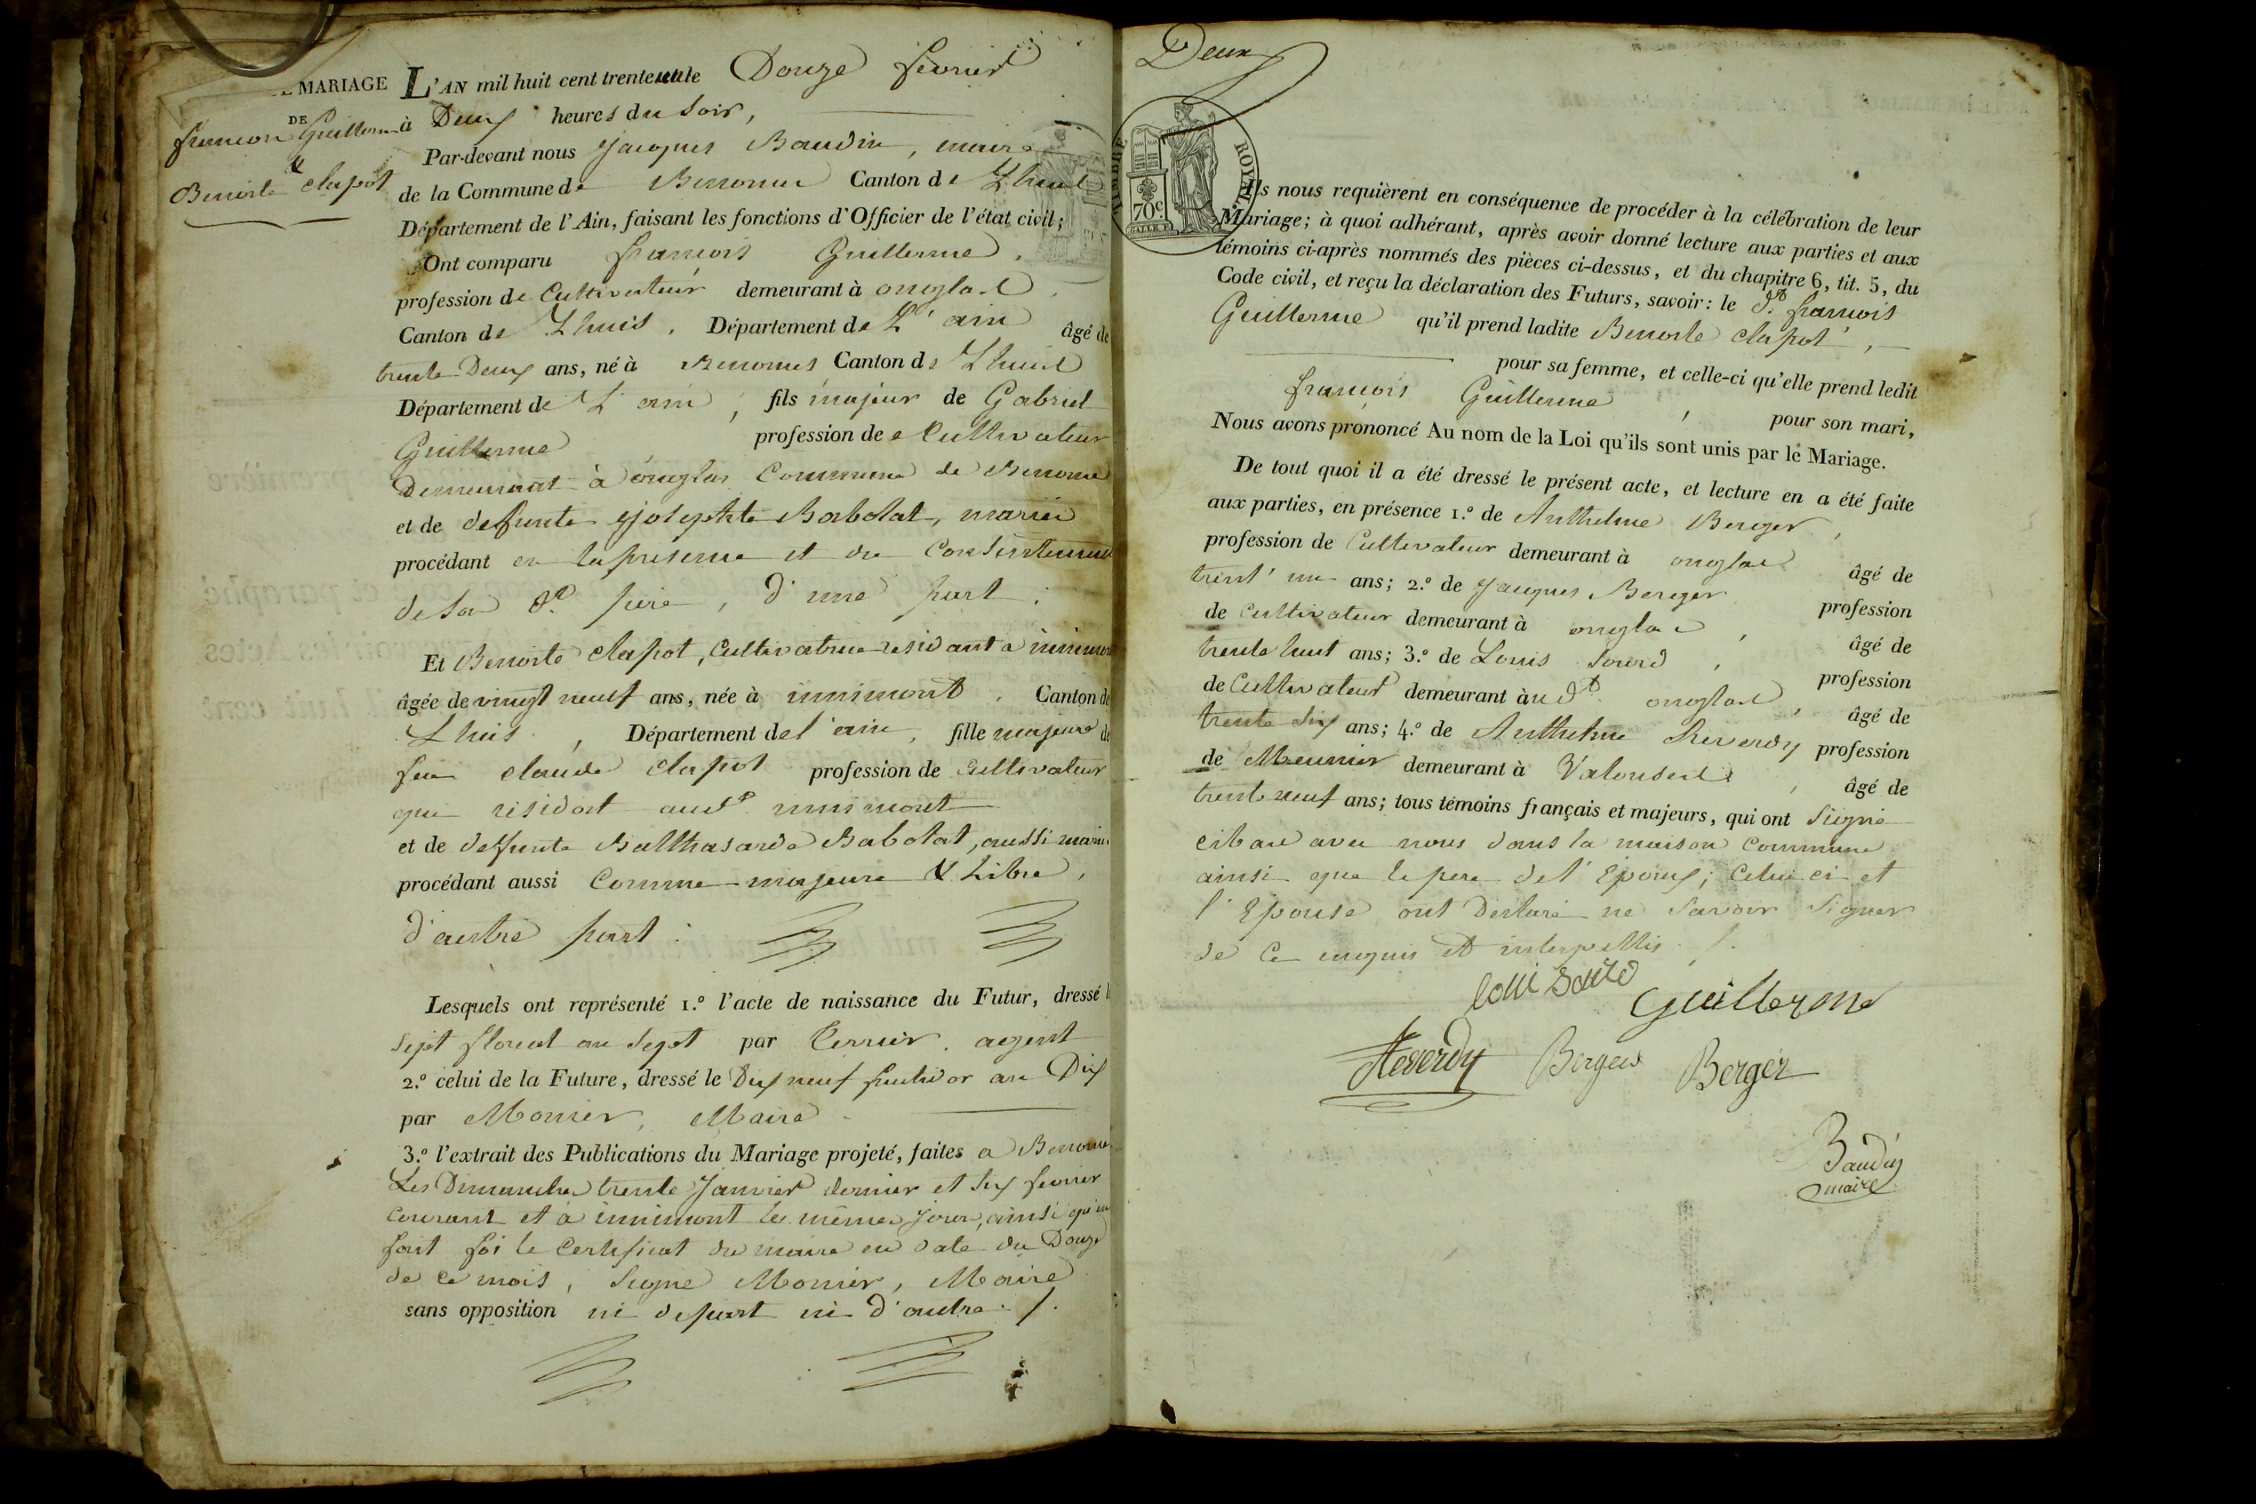 MARIAGE
DE
françois Guillerme
&
Benoite Clapot
L'AN mil huit cent trente un le Douze février
à Deux heures du soir,
Par-devant nous Jacques Baudin, maire
de la Commune de Benonce Canton de Lhuis
Département de l'Ain, faisant les fonctions d'Officier de l'état civil;
Ont comparu françois Guillerme,
profession de Cultivateur demeurant à onglas,
Canton de Lhuis, Département de L'ain âgé de
trente Deux ans, né à Benonces Canton de Lhuis
Département de L'ain, fils majeur de Gabriel
Guillerme profession de Cultivateur
Demeurant à onglas Commune de Benonce
et de defunte Josephte Babolat, mariés
procédant en la présence et du Consentement
de son dt. père, d'une part;
Et Benoite Clapot, Cultivatrice résidant à inimont
âgée de vingt neuf ans, née à innimont, Canton de
Lhuis, Département de l'ain, fille majeure de
feu claude Clapot profession de Cultivateur
qui résidoit audt. innimont
et de deffunte Balthasarde Babolat, aussi mariés
procédant aussi Comme majeure & Libre,
d'autre part:
Lesquels ont représenté 1.º l'acte de naissance du Futur, dressé le
sept floreal an sept par Perrier, agent
2.º celui de la Future, dressé le Dix neuf fructidor an Dix
par Monier, Maire
3.º l'extrait des Publications du Mariage projeté, faites a Benonce
Les Dimanches trente Janvier dernier et six fevrier
Courant et à innimont les mêmes jours, ainsi qu'en
fait foi le Certificat du maire en date du Douze
de ce mois, signé Monier, Maire
sans opposition ni de part ni d'autre ./.
Deux
TIMBRE ROYAL
70c
Ils nous requièrent en conséquence de procéder à la célébration de leur
Mariage; à quoi adhérant, après avoir donné lecture aux parties et aux
témoins ci-après nommés des pièces ci-dessus, et du chapitre 6, tit. 5, du
Code civil, et reçu la déclaration des Futurs, savoir: le dt. françois
Guillerme qu'il prend ladite Benoite Clapot,
pour sa femme, et celle-ci qu'elle prend ledit
françois Guillerme, pour son mari,
Nous avons prononcé Au nom de la Loi qu'ils sont unis par le Mariage.
De tout quoi il a été dressé le présent acte, et lecture en a été faite
aux parties, en présence 1.º de Anthelme Berger,
profession de Cultivateur demeurant à onglas âgé de
trent'un ans; 2.º de Jacques Berger profession
de cultivateur demeurant à onglas, âgé de
trente huit ans; 3.º de Louis Sourd, profession
de Cultivateur demeurant au dt. onglas, âgé de
trente six ans; 4.º de Anthelme Reverdy profession
de Meunier demeurant à Valouse, âgé de
trente neuf ans; tous témoins français et majeurs, qui ont signé
avec nous dans la maison Commune
ainsi que le pere de l'Epoux; Celui ci et
l'Epouse ont Déclaré ne savoir signer
de ce enquis et interpellés ./.
Guillerme
Reverdy Berger Berger
Baudin
maire